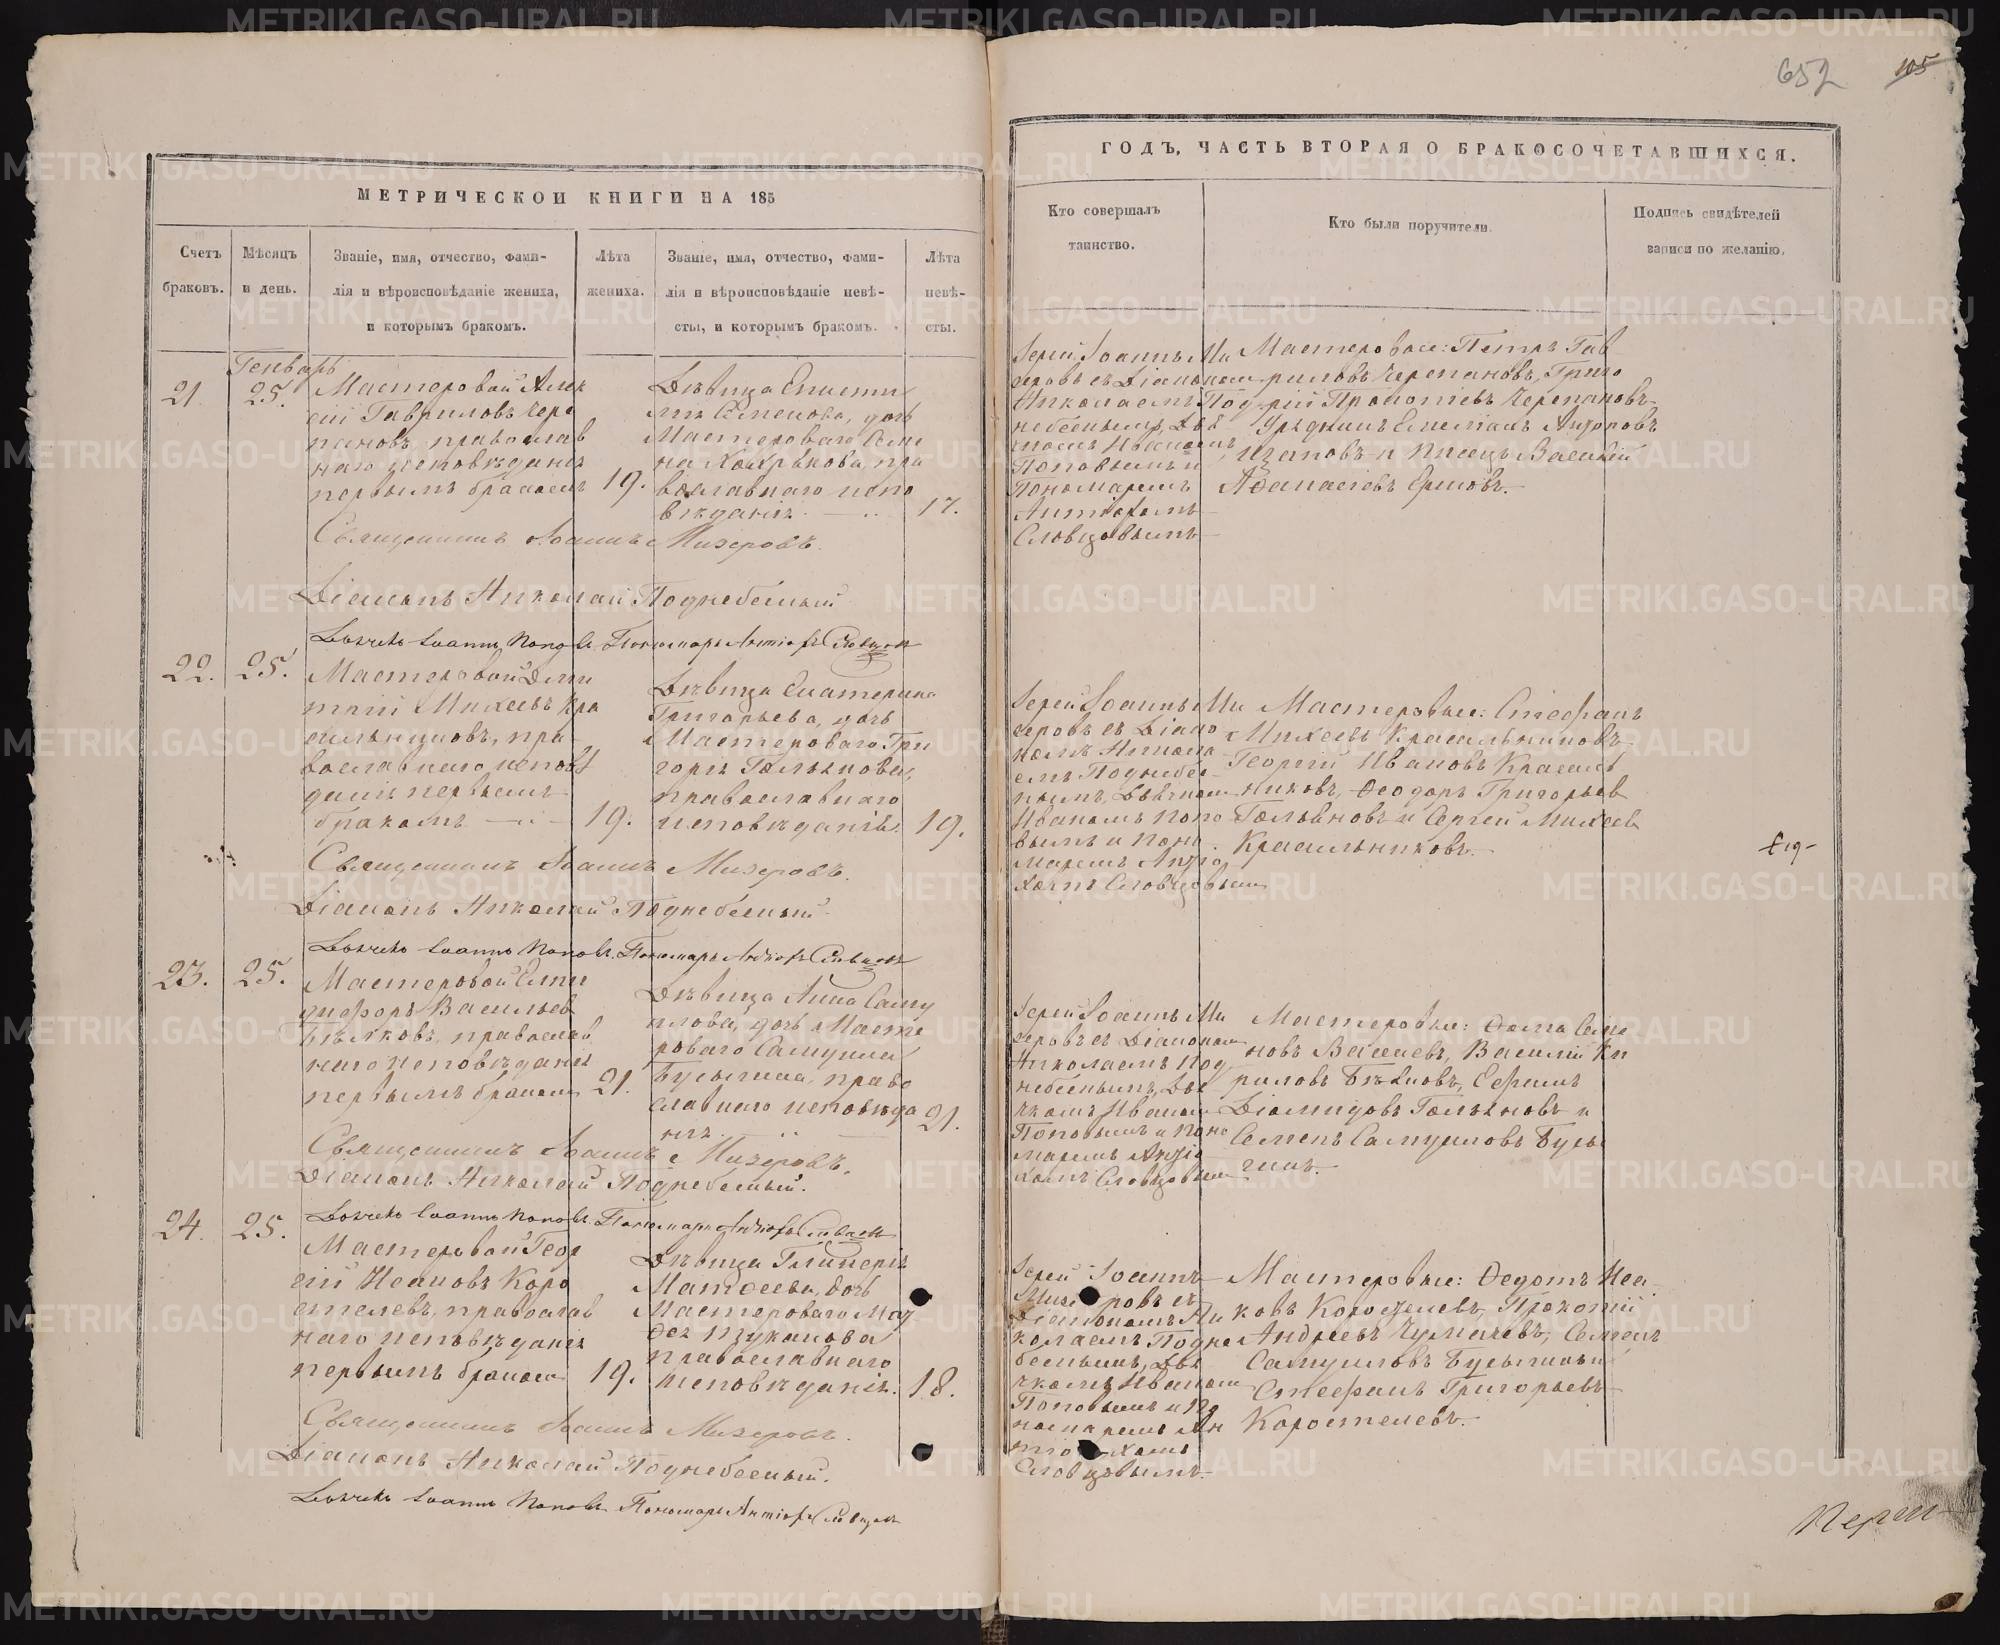 652 105
МЕТРИЧЕСКОЙ КНИГИ НА 185
ГОДЪ, ЧАСТЬ ВТОРАЯ О БРАКОСОЧЕТАВШИХСЯ.
Счетъ браковъ.
Мѣсяцъ и день.
Званіе, имя, отчество, фами-
лія и вѣроисповѣданіе жениха,
и которымъ бракомъ.
Лѣта
жениха.
Званіе, имя, отчество, фами-
лія и вѣроисповѣданіе невѣ-
сты, и которымъ бракомъ.
Лѣта
невѣ-
сты.
Кто совершалъ
таинство.
Кто были поручители.
Подпись свидѣтелей
записи по желанію.
Генварь
21. 25.
Мастеровой Алек
сій Гавриловъ Чере
пановъ, православ
наго исповѣданія
первымъ бракомъ
19.
Дѣвица
Семенова, дочь
Мастероваго Семе
на Хохрякова, пра
вославнаго испо
вѣданія.
17.
Іерей Іоаннъ Ми
зеровъ съ Діакономъ
Николаемъ Под
небеснымъ,
Поповымъ и
Пономаремъ
Антіохомъ
Словцовымъ
Мастеровые: Петръ Гав
риловъ Черепановъ, Григо
рій Прокопіевъ Черепановъ
Урядникъ Емеліанъ
и Писецъ Василій
Афанасіевъ Ершовъ.
Священникъ Іоаннъ Мизеровъ.
Діаконъ Николай Поднебесный
Дьячекъ Іоаннъ Поповъ. Пономарь Антіохъ Словцовъ
22. 25.
Мастеровой Дими
трій Михеевъ Кра
сильниковъ, пра
вославнаго исповѣ
данія первымъ
бракомъ
19.
Дѣвица Екатерина
Григорьева, дочь
Мастероваго Гри
горія Гольянова,
православнаго
исповѣданія.
19.
Іерей Іоаннъ Ми
зеровъ съ Діако
номъ Никола
емъ Поднебес
нымъ, Дьячкомъ
Иваномъ Попо
вымъ и Поно
маремъ Антіо
хомъ Словцовымъ
Мастеровые: Стефанъ
Михеевъ Красильниковъ
Георгій Ивановъ Красиль
никовъ, Феодоръ Григорьевъ
Гольяновъ и Сергей Михеевъ
Красильниковъ.
Священникъ Іоаннъ Мизеровъ.
Діаконъ Николай Поднебесный
Дьячекъ Іоаннъ Поповъ. Пономарь Антіохъ Словцовъ
23. 25.
Мастеровой Епи
дифоръ Васильевъ
Бѣляковъ, православ
наго исповѣданія
первымъ бракомъ
21.
Дѣвица Анна Саму
илова, дочь Масте
роваго Самуила
Бусыгина, право
славнаго исповѣда
нія.
21.
Іерей Іоаннъ Ми
зеровъ съ Діакономъ
Николаемъ Под
небеснымъ, Дья
чкомъ Иваномъ
Поповымъ и Поно
маремъ Антіо
хомъ Словцовымъ
Мастеровые: Фома Семе
новъ Василій Ки
риловъ Бѣляковъ, Ефимъ
Діомидовъ Гольяновъ и
Семенъ Самуиловъ Бусы
гинъ.
Священникъ Іоаннъ Мизеровъ.
Діаконъ Николай Поднебесный.
Дьячекъ Іоаннъ Поповъ. Пономарь Антіохъ Словцовъ
24. 25.
Мастеровой Геор
гій Исаковъ Коро
стелевъ, православ
наго исповѣданія
первымъ бракомъ
19.
Дѣвица Гликерія
Матѳеева, дочь
Мастероваго Мат
ѳея Изуканова
православнаго
исповѣданія.
18.
Іерей Іоаннъ
Мизеровъ съ
Діакономъ Ни
колаемъ Подне
беснымъ, Дья
чкомъ Иваномъ
Поповымъ и По
номаремъ Ан
тіохомъ
Словцовымъ
Мастеровые: Федотъ Иса
ковъ Коростелевъ, Прокопій
Андреевъ Чумачевъ, Семенъ
Самуиловъ Бусыгинъ и
Стефанъ Григорьевъ
Коростелевъ.
Священникъ Іоаннъ Мизеровъ.
Діаконъ Николай Поднебесный.
Дьячекъ Іоаннъ Поповъ. Пономарь Антіохъ Словцовъ
METRIKI.GASO-URAL.RU